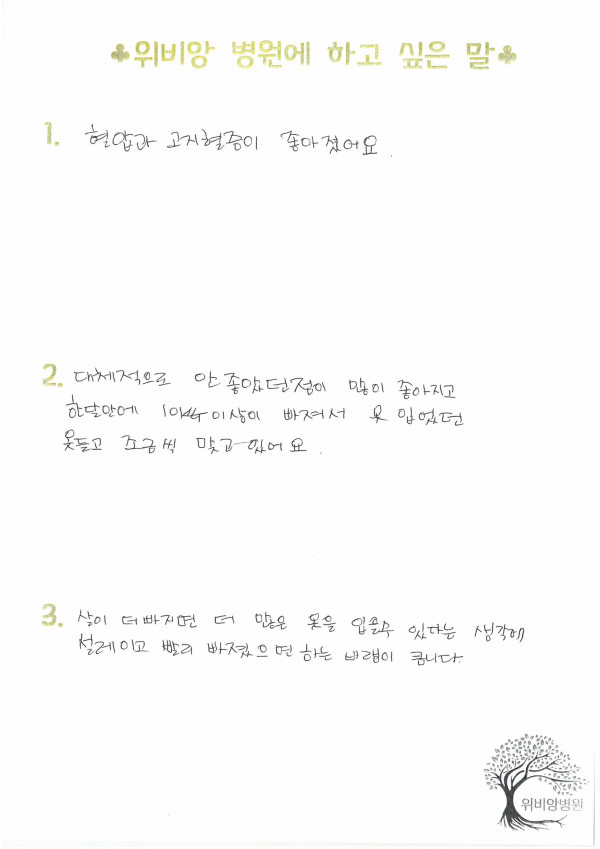 ♣위비앙 병원에 하고 싶은 말♣
1. 혈압과 고지혈증이 좋아졌어요.
2. 대체적으로 안좋았던점이 많이 좋아지고
한달안에 이상이 빠져서 못 입었던
옷들고 조금씩 맞고있어요.
3. 살이 더빠지면 더 많은 옷을 입을수 있다는 생각에
설레이고 빨리 빠졌으면하는 바램이 큽니다.
위비앙병원